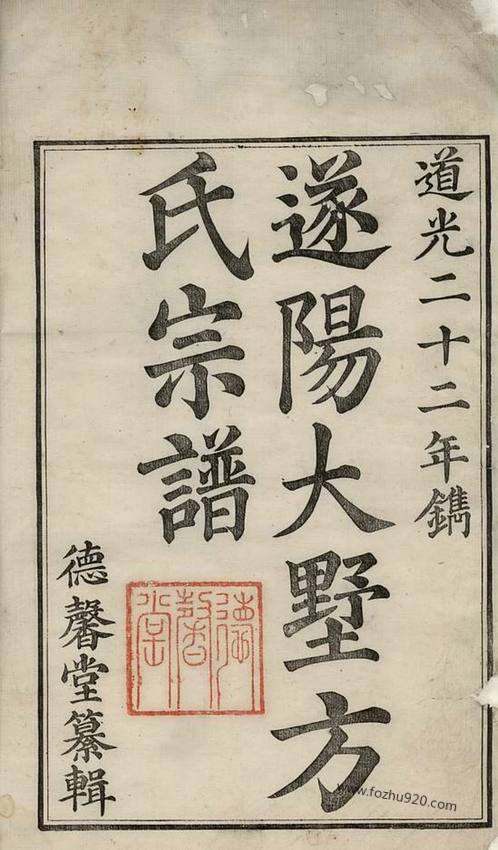 道光二十二年鐫
遂陽大墅方
氏宗譜
德馨堂
德馨堂纂輯
www.fozhu920.com